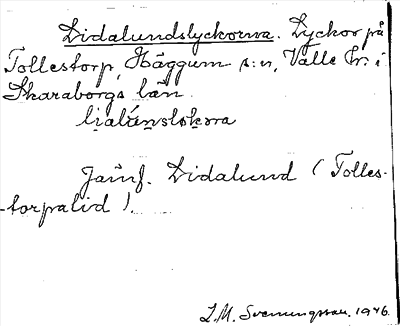 Lidalundslyckorna. Lyckor på
Tollestorp, Häggum s:n, Valle hr. i
Skaraborgs län.
Jämf. Lidalund (Tolles-
-torpalid).
L.M. Svenungsson. 1946.